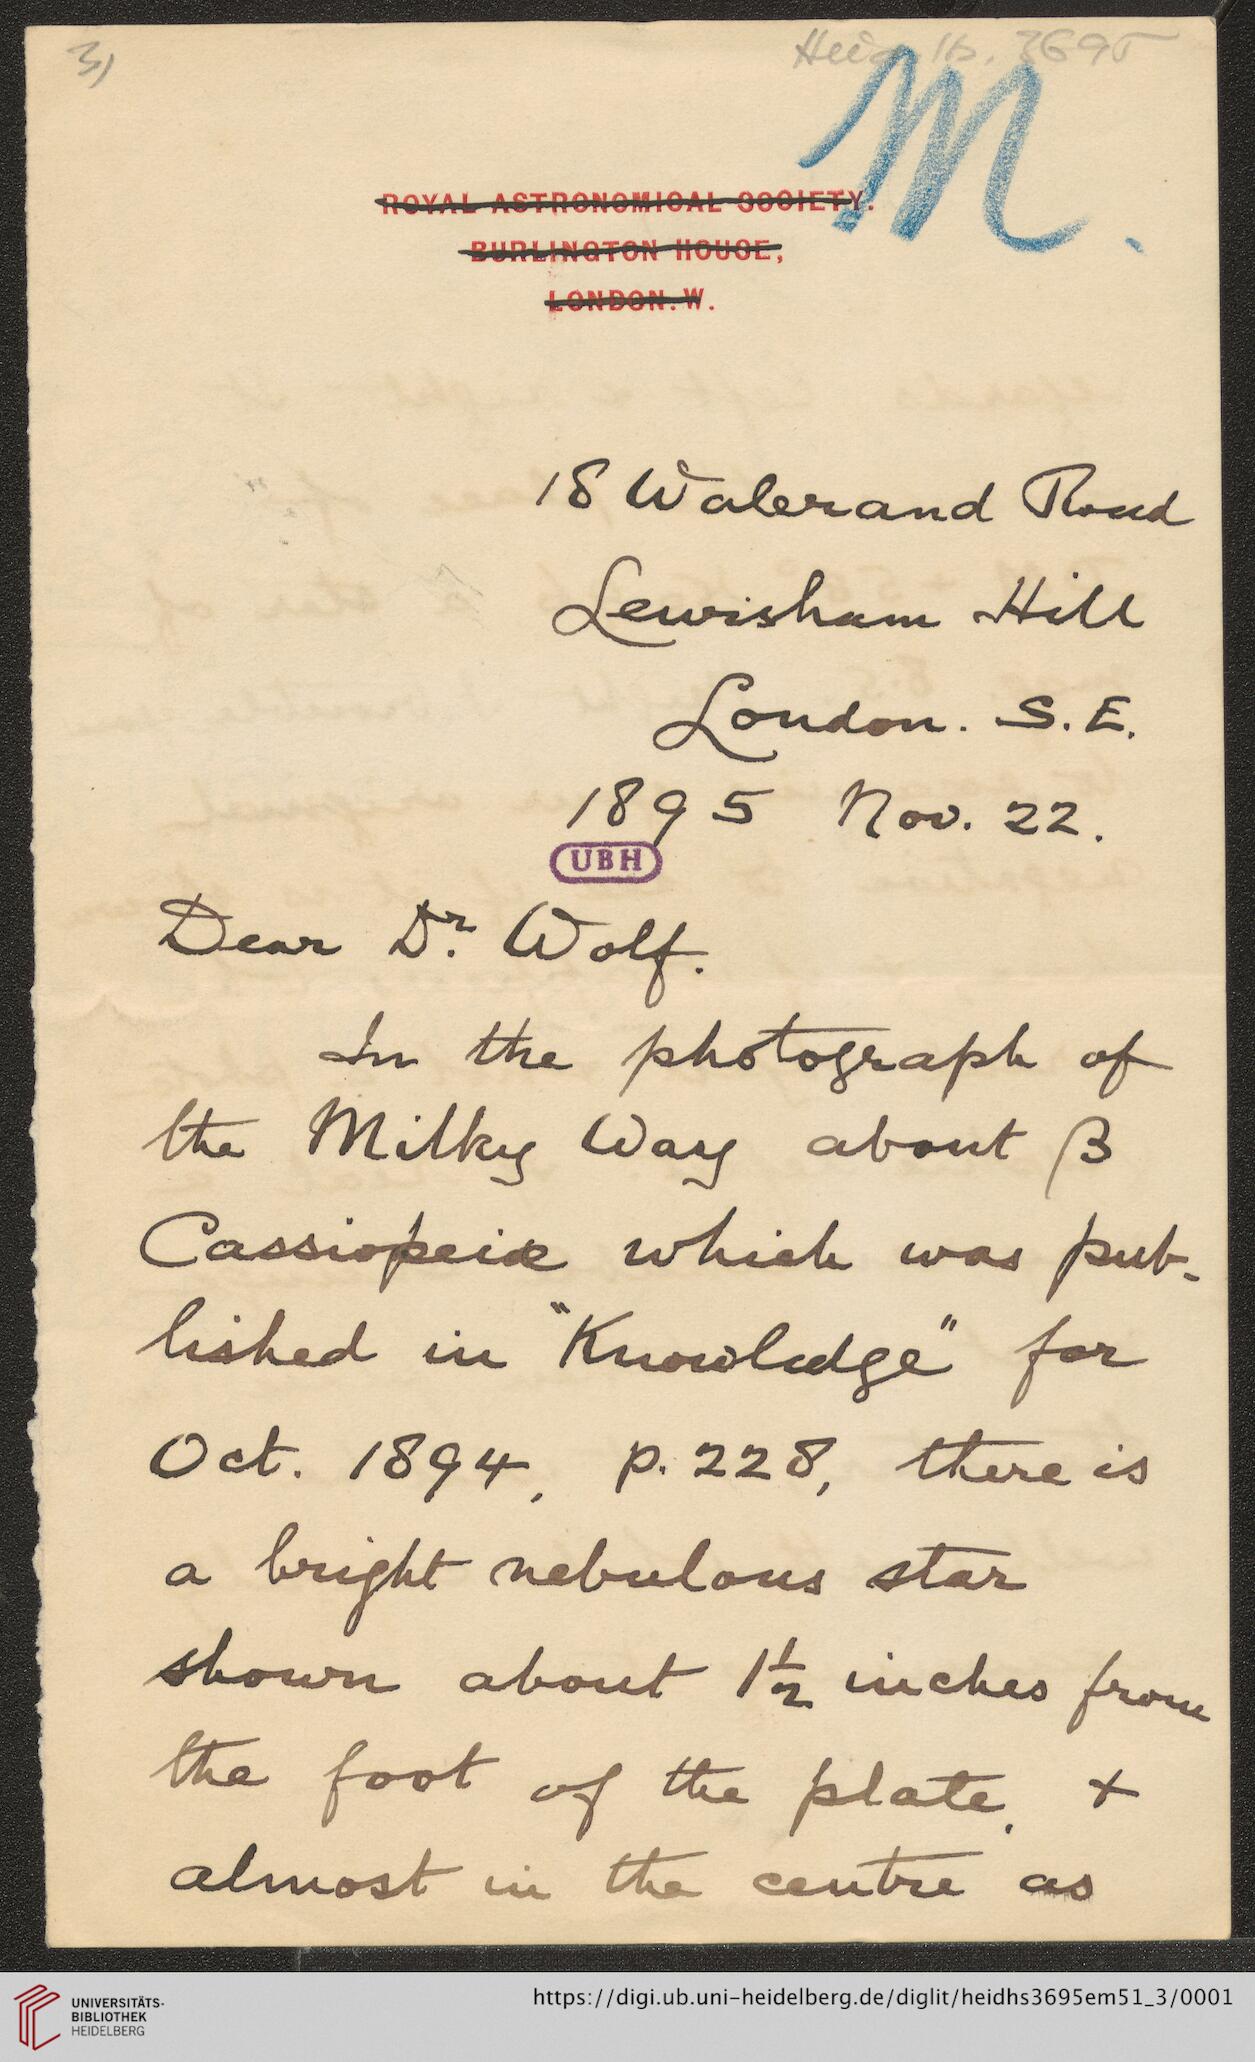 3)
Heid. Hs. 3695
M.
ROYAL ASTRONOMICAL SOCIETY.
BURLINGTON HOUSE,
LONDON. W.
18 Walerand Road
Lewisham Hill
London. S.E.
1895 Nov. 22.
UBH
Dear Dr. Wolf.
In the photograph of
the Milky Way about β
Cassiopeiæ which was pub-
lished in "Knowledge" for
Oct. 1894, p. 228, there is
a bright nebulous star
shown about 1½ inches from
the foot of the plate, +
almost in the centre as
UNIVERSITÄTS-
BIBLIOTHEK
HEIDELBERG
https://digi.ub.uni-heidelberg.de/diglit/heidhs3695em51_3/0001